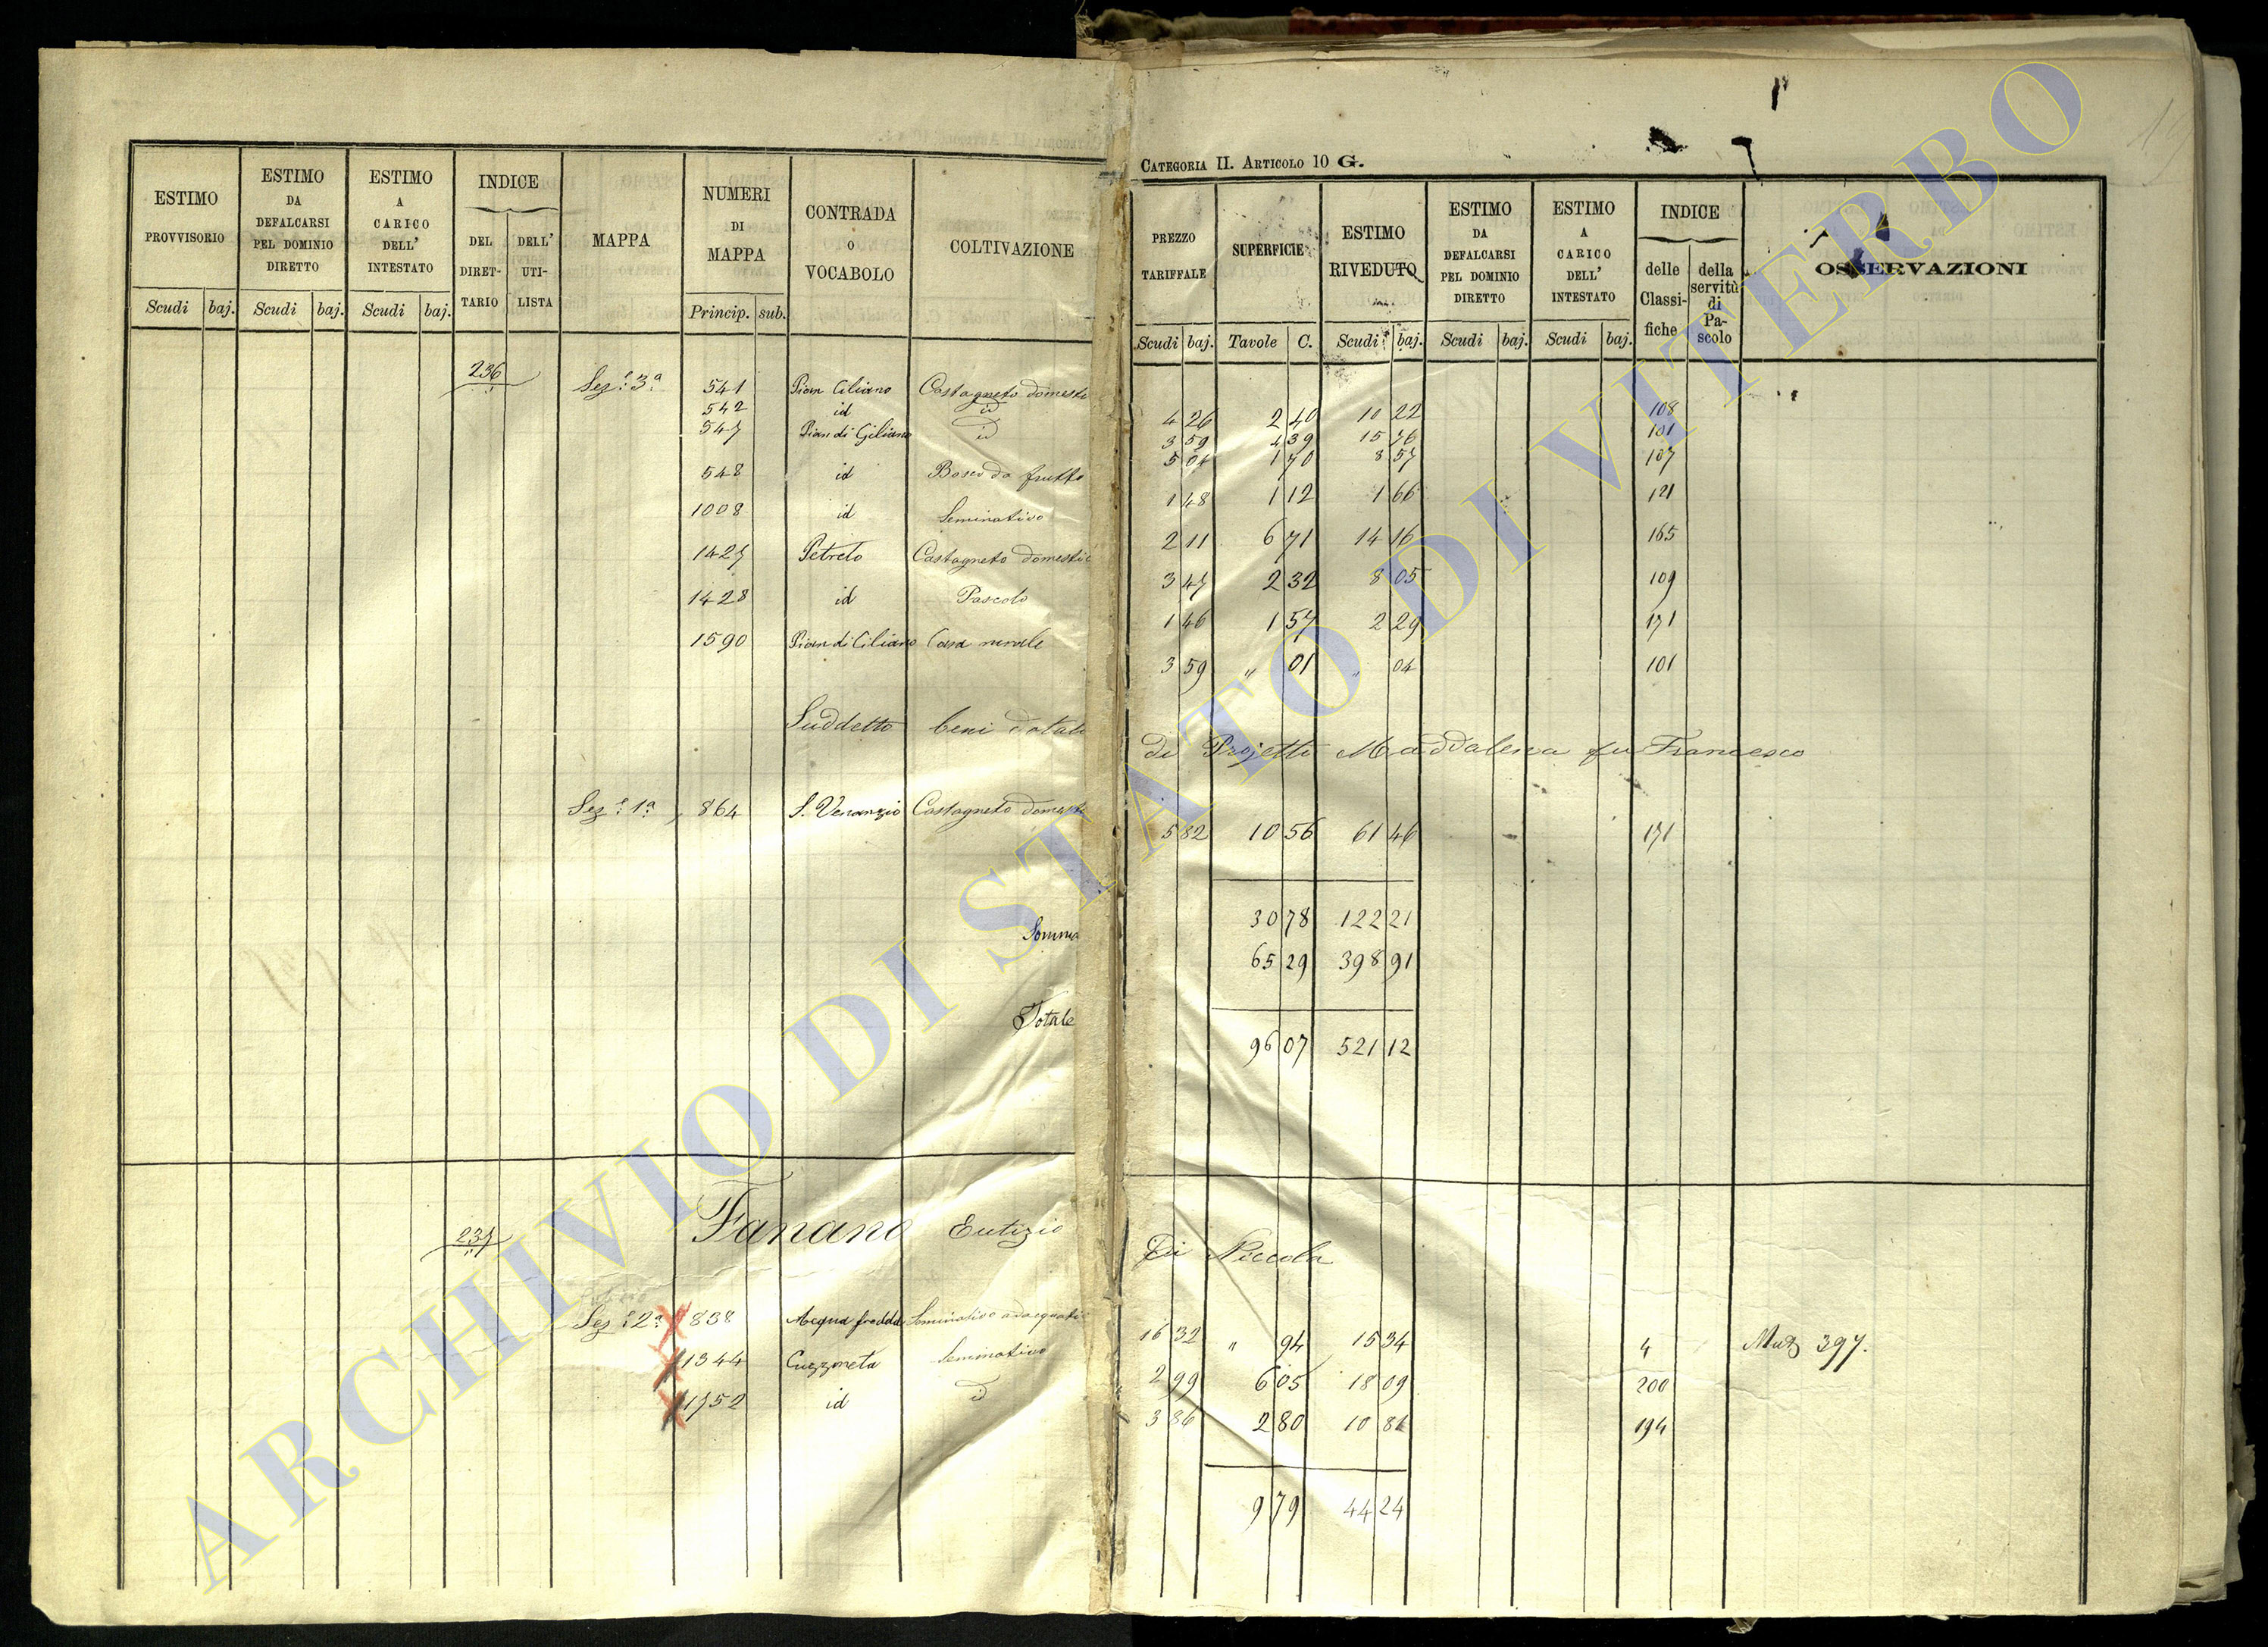 CATEGORIA II. ARTICOLO 10 G.
ESTIMO PROVVISORIO Scudi baj.
ESTIMO DA DEFALCARSI PEL DOMINIO DIRETTO Scudi baj.
ESTIMO A CARICO DELL' INTESTATO Scudi baj.
INDICE DEL DIRETTARIO DELL' UTILISTA
MAPPA
NUMERI DI MAPPA Princip. sub.
CONTRADA O VOCABOLO
COLTIVAZIONE
PREZZO TARIFFALE Scudi baj.
SUPERFICIE Tavole C.
ESTIMO RIVEDUTO Scudi baj.
ESTIMO DA DEFALCARSI PEL DOMINIO DIRETTO Scudi baj.
ESTIMO A CARICO DELL' INTESTATO Scudi baj.
INDICE delle Classifiche della servitù di Pascolo
OSSERVAZIONI
236 Sez.e 3a 541 Pian Ciliano Castagneto domesti 4 26 2 40 10 22 108
542 id id 3 59 4 39 15 76 101
547 Pian di Giliano id 5 04 1 70 8 57 107
548 id Bosco da frutto 1 48 1 12 1 66 121
1008 id Seminativo 2 11 6 71 14 16 165
1427 Petreto Castagneto domestic 3 47 2 32 8 05 109
1428 id Pascolo 1 46 1 57 2 29 171
1590 Pian di Ciliano Casa rurale 3 59 " 01 " 04 101
Suddetto beni dotali di Projetti Maddalena fu Francesco
Sez.e 1a 864 S. Venanzio Castagneto domesti 5 82 10 56 61 46 171
Somma 30 78 122 21
65 29 398 91
Totale 96 07 521 12
237 Fanano Eutizio Di Niccola
Sez.e 2a 838 Acqua fredda Seminativo adacquativ 16 32 " 94 15 34 4 Mut 397.
1344 Cuzzoneta Seminativo 2 99 6 05 18 09 200
1752 id id 3 86 2 80 10 81 194
9 79 44 24
ARCHIVIO DI STATO DI VITERBO